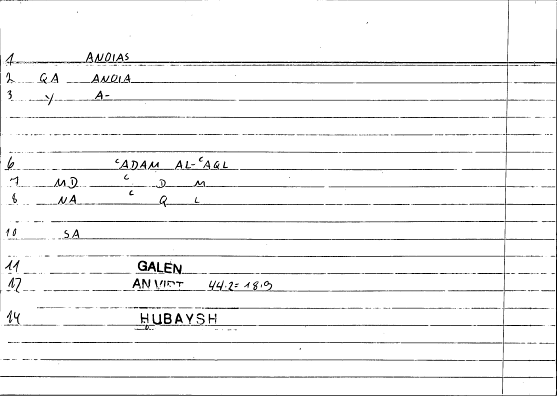 1 ANOIAS
2 QA ANOIA
3 Y A-
6 ʿADAM AL-ʿAQL
7 MD ʿ D M
8 NA ʿ Q L
10 SA
11 GALEN
12 AN VIRT 44.2=18.9
14 ḤUBAYSH